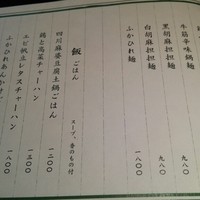 牛筋辛味鍋麺 九八〇
黒胡麻担担麺 九八〇
白胡麻担担麺 九八〇
ふかひれ麺 一八〇〇
飯 ごはん
スープ、香のもの付
四川麻婆豆腐土鍋ごはん
鶏と高菜チャーハン 一二〇〇
エビ帆立レタスチャーハン 一三〇〇
ふかひれあんかけ 一八〇〇